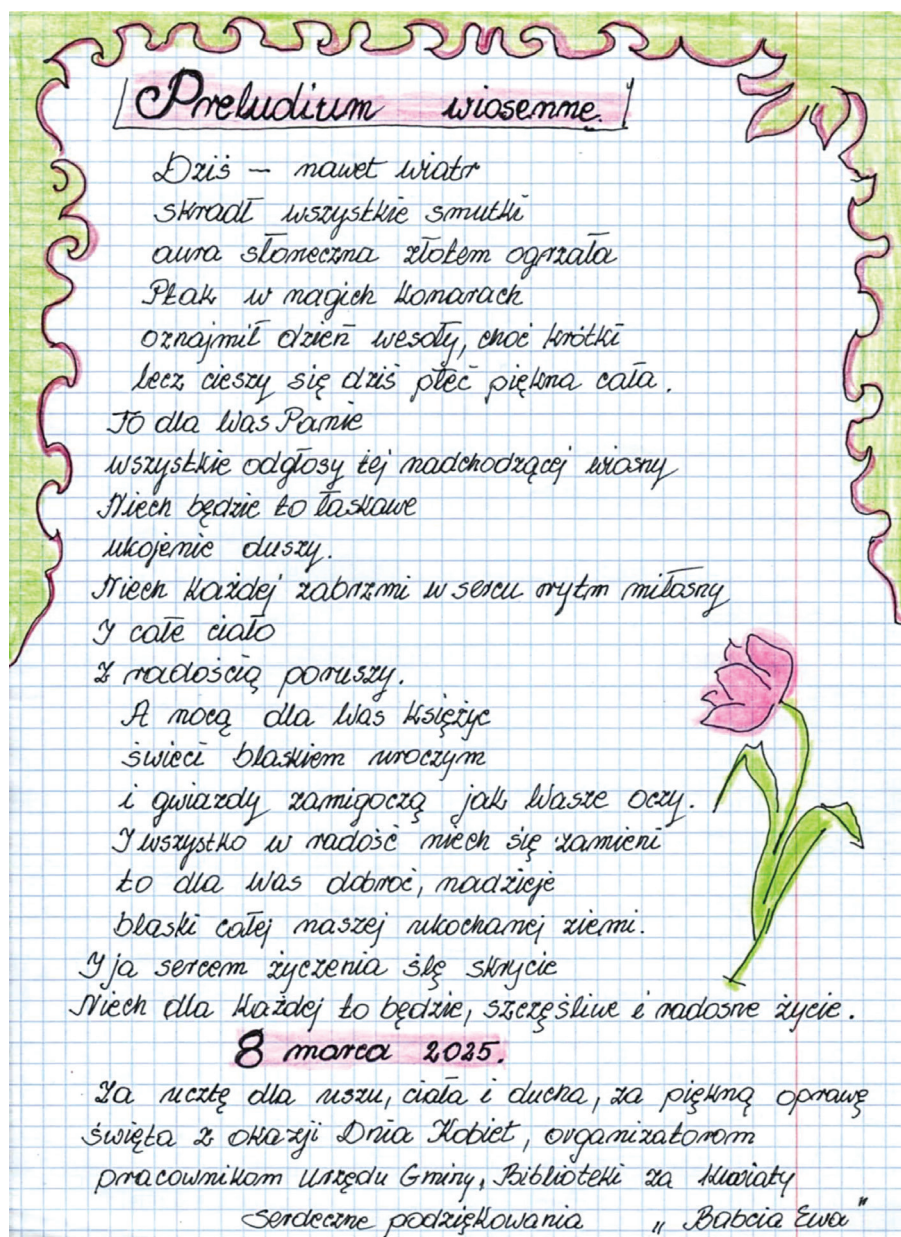 Preludium wiosenne.
Dziś – nawet wiatr
skradł wszystkie smutki
aura słoneczna złotem ogrzała
Ptak w nagich konarach
oznajmił dzień wesoły, choć krótki
lecz cieszy się dziś płeć piękna cała.
To dla Was Panie
wszystkie odgłosy tej nadchodzącej wiosny
Niech będzie to łaskawe
ukojenie duszy.
Niech każdej zabrzmi w sercu rytm miłosny
I całe ciało
Z radością poruszy.
A nocą dla Was księżyc
świeci blaskiem uroczym
i gwiazdy zamigoczą jak Wasze oczy.
I wszystko w radość niech się zamieni
to dla Was dobroć, nadzieje
blaski całej naszej ukochanej ziemi.
I ja sercem życzenia ślę skrycie
Niech dla każdej to będzie, szczęśliwe i radosne życie.
8 marca 2025.
Za ucztę dla uszu, ciała i ducha, za piękną oprawę
święta z okazji Dnia Kobiet, organizatorom
pracownikom Urzędu Gminy, Biblioteki za kwiaty
serdeczne podziękowania „Babcia Ewa"